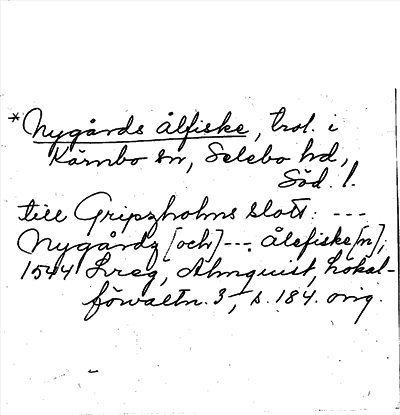 *Nygårds ålfiske, trol. i
Kärnbo sn, Selebo hd,
Söd. l.
till Gripzholms slott: ---
Nygårdz [och] --- ålefiske[n],
1544 Lreg, Almquist, Lokal-
förvaltn. 3, s. 184. orig.